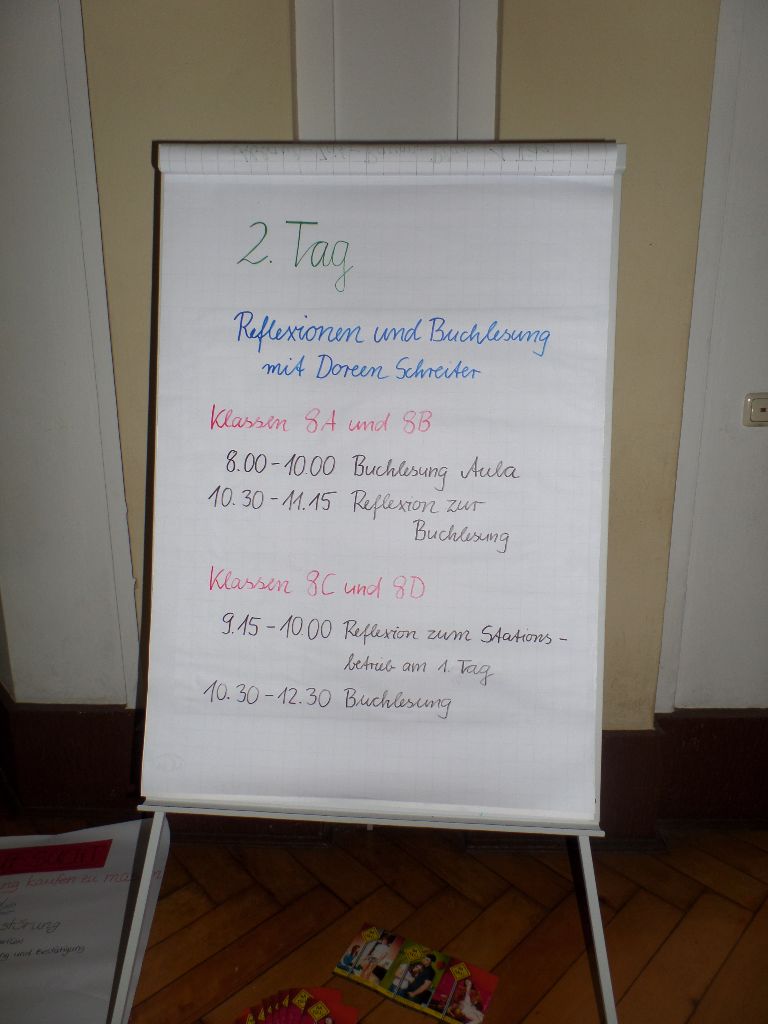 2. Tag
Reflexionen und Buchlesung
mit Doreen Schreiter
Klassen 8A und 8B
8.00 - 10.00 Buchlesung Aula
10.30 - 11.15 Reflexion zur
Buchlesung
Klassen 8C und 8D
9.15 - 10.00 Reflexion zum Stations-
betrieb am 1. Tag
10.30 - 12.30 Buchlesung
ng kaufen zu ma
störung
ng und Bestätigung